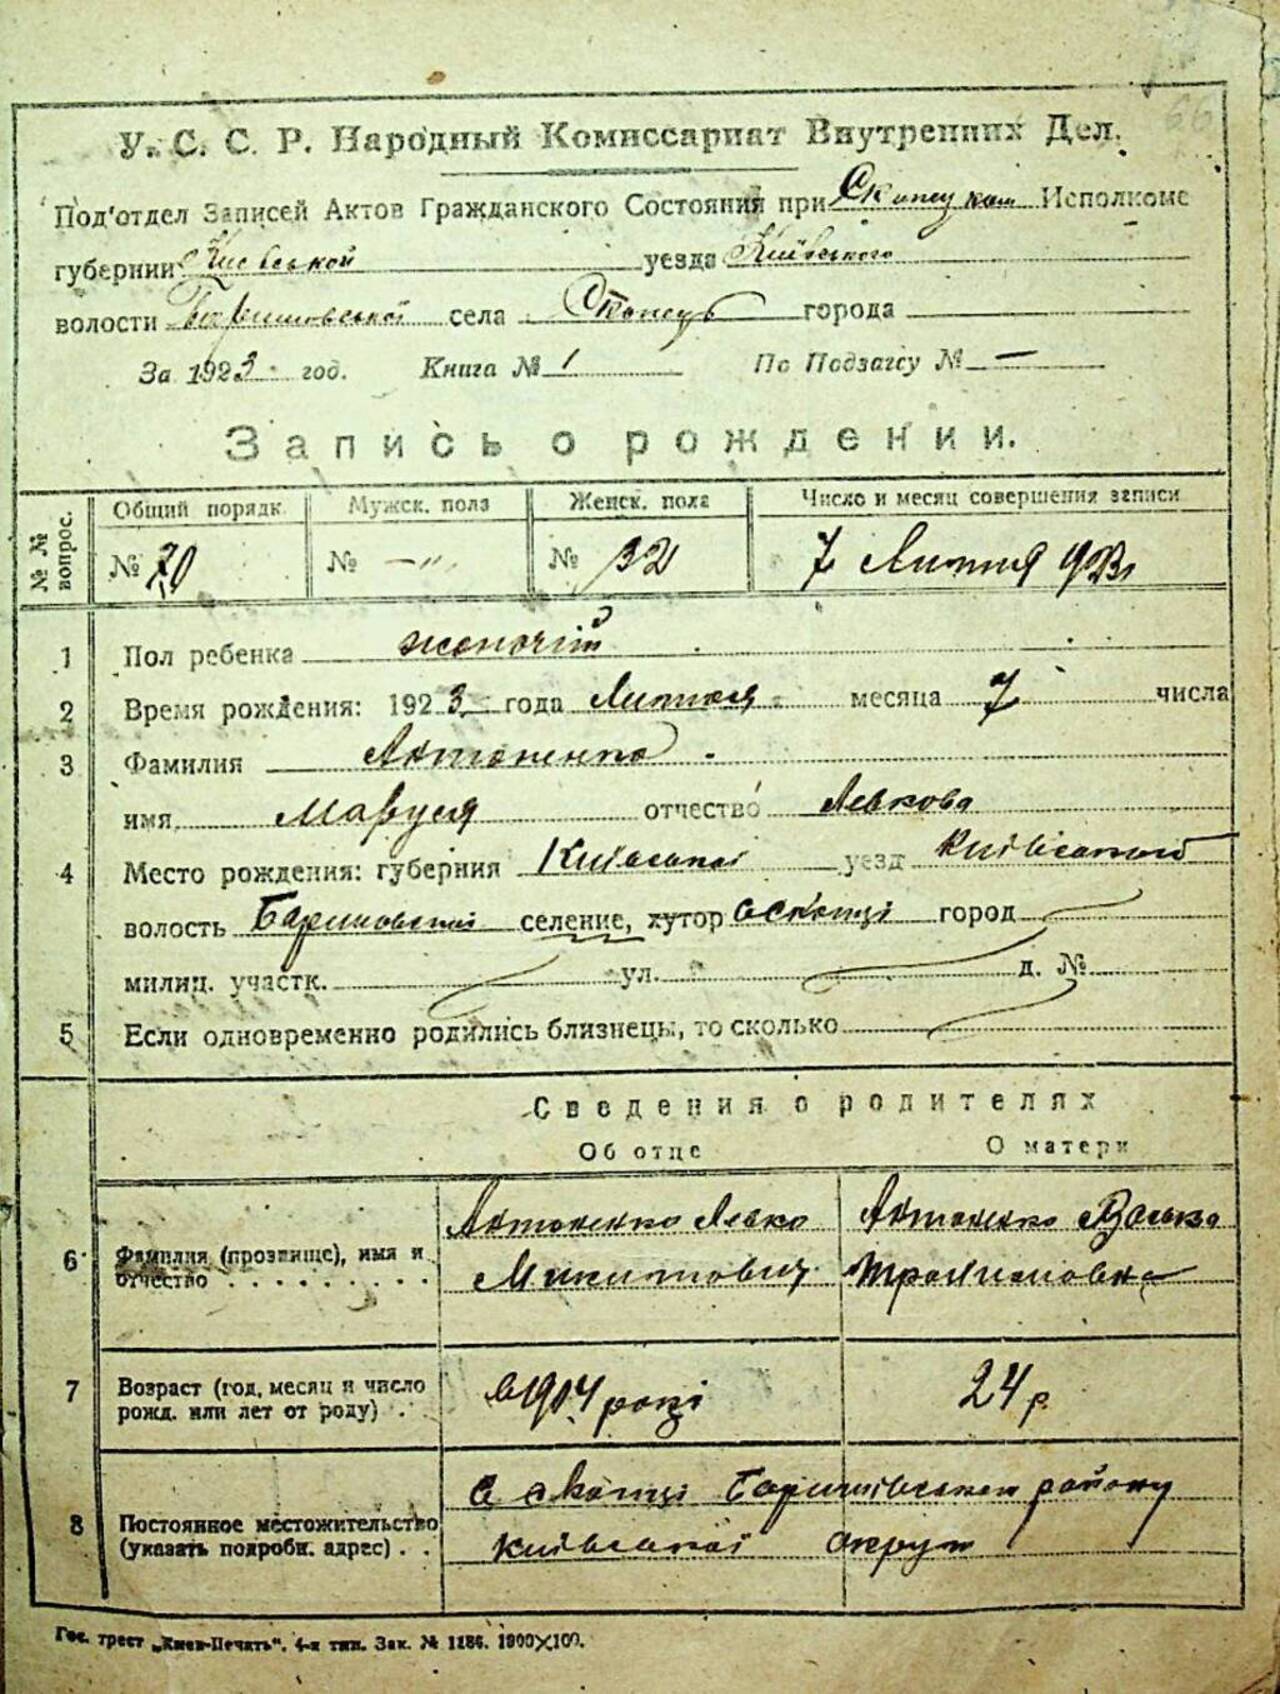 66
У. С. С. Р. Народный Комиссариат Внутренних Дел.
Под'отдел Записей Актов Гражданского Состояния при Исполкоме
губернии Киевськой уезда Київського
волости села Скопець города
За 1923 год. Книга № 1 По Подзагсу № —
Запись о рождении.
№ № вопрос. Общий порядк. Мужск. пола Женск. пола Число и месяц совершения записи
№ 70 № —"— № 32 7 Липня 923
1 Пол ребенка жіночій
2 Время рождения: 1923 года Липня месяца 7 числа
3 Фамилия Антоненко
имя Маруся отчество Левкова
4 Место рождения: губерния Київської уезд Київський
волость Баришовської селение, хутор с Скопці город
милиц. участк. ул. д. №
5 Если одновременно родились близнецы, то сколько
Сведения о родителях
Об отце О матери
6 Фамилия (прозвище), имя и отчество Антоненко Левко Микитович Антоненко
7 Возраст (год, месяц и число рожд. или лет от роду) в 1904 році 24 р.
8 Постоянное местожительство (указать подробн. адрес) с Скопці Баришівського району
київської округи
Гос. трест „Киев-Печать“. 4-я тип. Зак. № 1186. 1000×100.